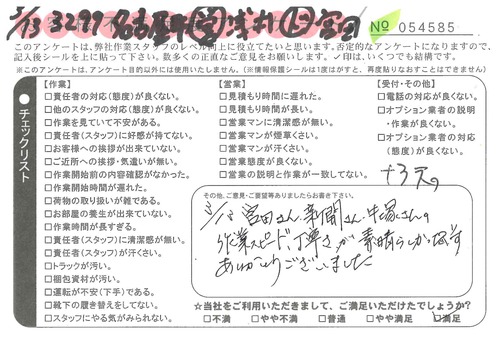 3/13 3297 名古屋 宮田
№ 054585
このアンケートは、弊社作業スタッフのレベル向上に役立てたいと思います。否定的なアンケートになりますので、
記入後シールを上に貼って下さい。数多くの正直なご意見をお願いします。✓印は、いくつでも結構です。
※このアンケートは、アンケート目的以外には使用いたしません。(※情報保護シールは1度はがすと、再度貼りなおすことはできません)
チェックリスト
【作業】
□責任者の対応(態度)が良くない。
□他のスタッフの対応(態度)が良くない。
□作業を見ていて不安がある。
□責任者(スタッフ)に好感が持てない。
□お客様への挨拶が出来ていない。
□ご近所への挨拶・気遣いが無い。
□作業開始前の内容確認がなかった。
□作業開始時間が遅れた。
□荷物の取り扱いが雑である。
□お部屋の養生が出来ていない。
□作業時間が長すぎる。
□責任者(スタッフ)に清潔感が無い。
□責任者(スタッフ)が汗くさい。
□トラックが汚い。
□梱包資材が汚い。
□運転が不安(下手)である。
□靴下の履き替えをしてない。
□スタッフにやる気がみられない。
【営業】
□見積もり時間に遅れた。
□見積もり時間が長い。
□営業マンに清潔感が無い。
□営業マンが煙草くさい。
□営業マンが汗くさい。
□営業態度が良くない。
□営業の説明と作業が一致してない。
【受付・その他】
□電話の対応が良くない。
□オプション業者の説明
・作業が良くない。
□オプション業者の対応
(態度)が良くない。
+3天。
その他、ご意見・ご要望等ありましたらお書き下さい。
3/13 宮田さん、新開さん、牛場さんの
作業スピード、丁寧さが素晴らしかったです
ありがとうございました
☆当社をご利用いただきまして、ご満足いただけたでしょうか?
□不満 □やや不満 □普通 □やや満足 ☑満足